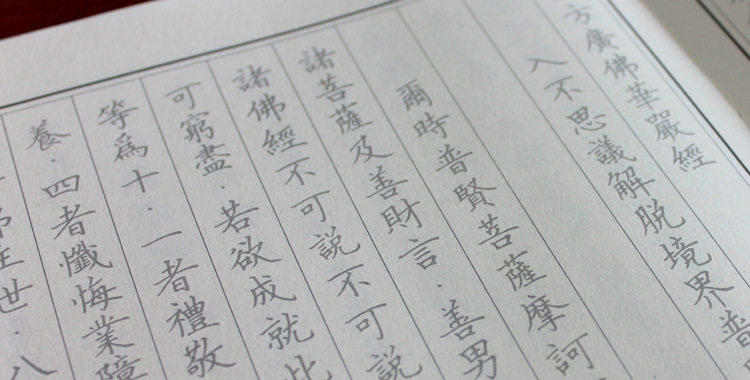 方廣佛華嚴經
入不思議解脫境界普
爾時普賢菩薩摩訶
諸菩薩及善財言．善男
諸佛經不可說不可說
可窮盡．若欲成就此
等爲十．一者禮敬
養．四者懺悔業障
住世．八